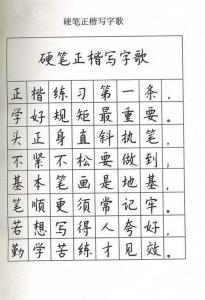 硬笔正楷写字歌
硬笔正楷写字歌
正楷练习第一条，
学好规矩最重要。
头正身直斜执笔，
不紧不松要做到，
基本笔画是地基，
笔顺更须常记牢。
若想写得人夸好，
勤学苦练才见效。